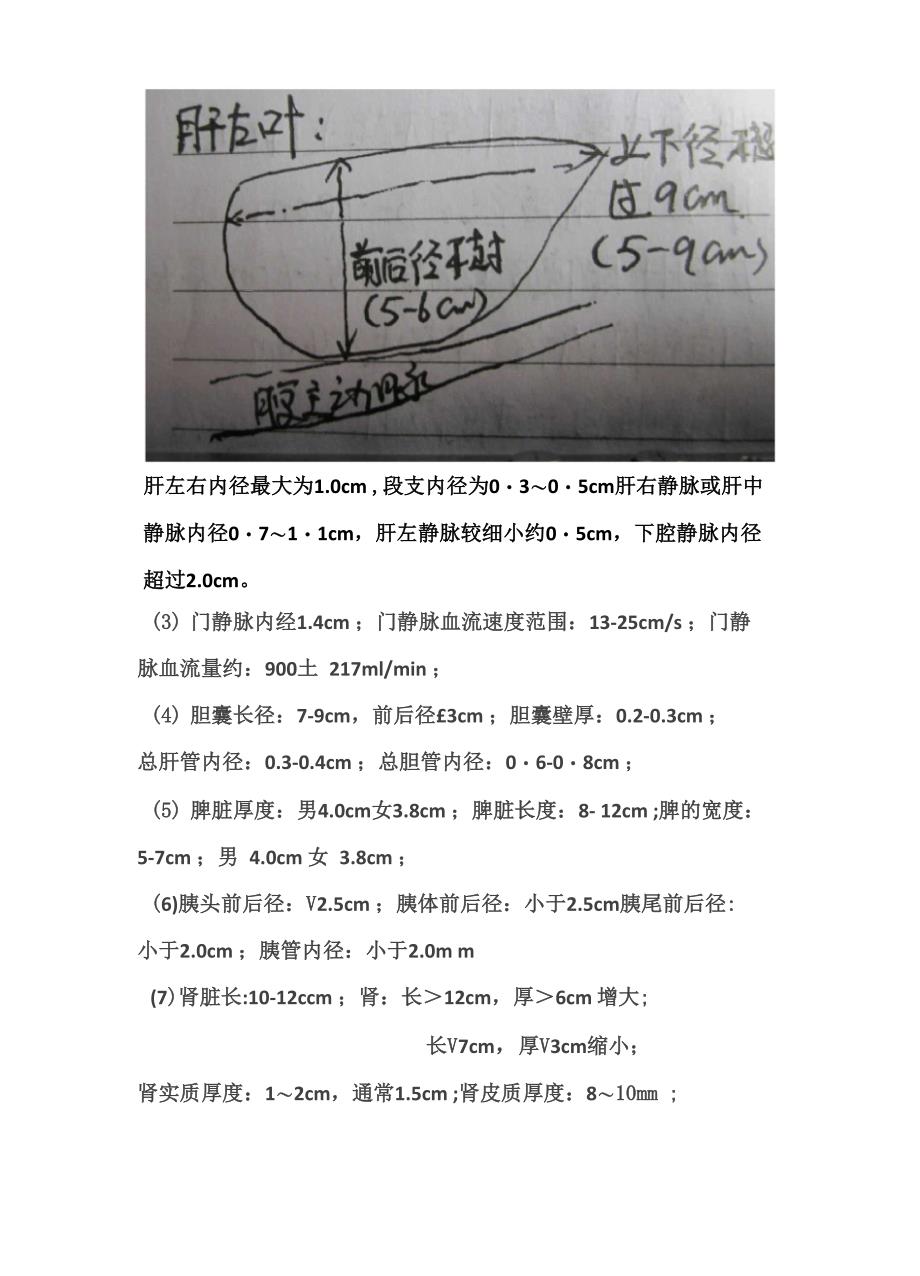 肝左叶：
上下径不超
过9cm
(5-9cm)
前后径不超
(5-6cm)
腹主动脉
肝左右内径最大为1.0cm , 段支内径为0・3～0・5cm肝右静脉或肝中
静脉内径0・7～1・1cm，肝左静脉较细小约0・5cm，下腔静脉内径
超过2.0cm。
(3）门静脉内经1.4cm ；门静脉血流速度范围：13-25cm/s ；门静
脉血流量约：900土 217ml/min ；
(4）胆囊长径：7-9cm，前后径£3cm ；胆囊壁厚：0.2-0.3cm ；
总肝管内径：0.3-0.4cm ；总胆管内径：0・6-0・8cm ；
(5）脾脏厚度：男4.0cm女3.8cm ；脾脏长度：8- 12cm ;脾的宽度：
5-7cm ；男 4.0cm 女 3.8cm ；
(6)胰头前后径：V2.5cm ；胰体前后径：小于2.5cm胰尾前后径：
小于2.0cm ；胰管内径：小于2.0m m
(7)肾脏长:10-12ccm ；肾：长＞12cm，厚＞6cm 增大；
长V7cm，厚V3cm缩小；
肾实质厚度：1～2cm，通常1.5cm ;肾皮质厚度：8～10mm ；